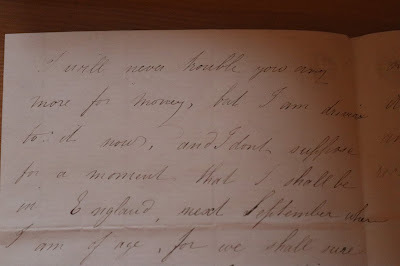 I will never trouble you any
more for money, but I am driven
to it now, and I dont suppose
for a moment that I shall be
in England, next September when
I am of age, for we shall sure